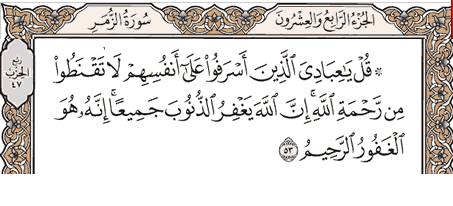 الجزء الرابع والعشرون
سورة الزمر
ربع
الحزب
٤٧
۞ قُلْ يَٰعِبَادِيَ ٱلَّذِينَ أَسْرَفُوا۟ عَلَىٰٓ أَنفُسِهِمْ لَا تَقْنَطُوا۟
مِن رَّحْمَةِ ٱللَّهِ ۚ إِنَّ ٱللَّهَ يَغْفِرُ ٱلذُّنُوبَ جَمِيعًا ۚ إِنَّهُۥ هُوَ
ٱلْغَفُورُ ٱلرَّحِيمُ ٥٣